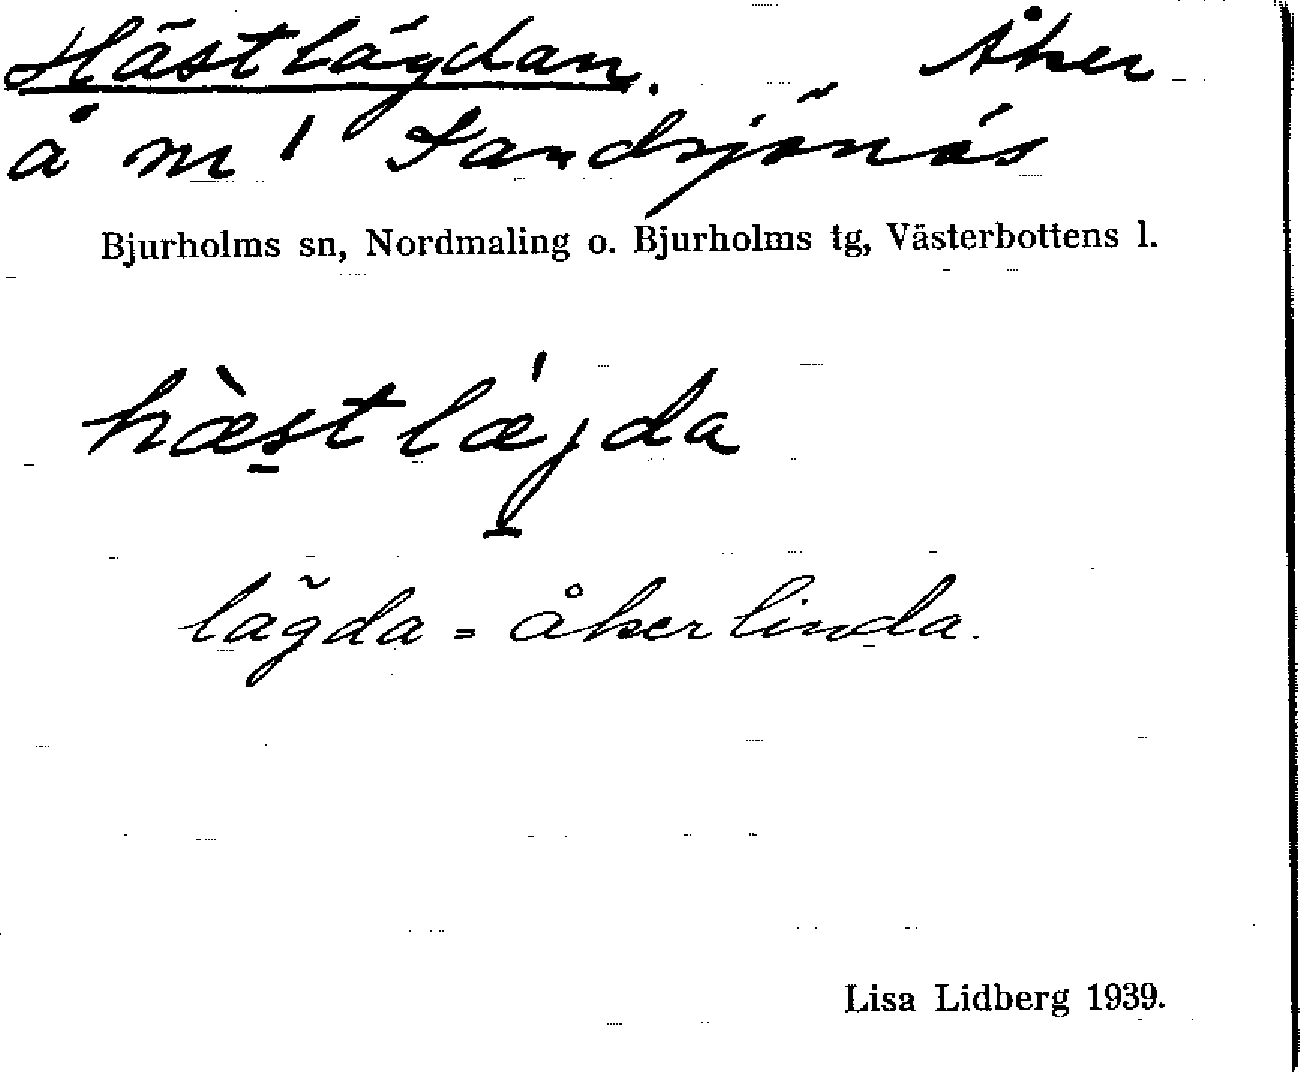 Hästlägdan. Åker
å m¹ Sandsjönäs
Bjurholms sn, Nordmaling o. Bjurholms tg, Västerbottens l.
hæ̀st lǽjda
lägda = åkerlinda.
Lisa Lidberg 1939.